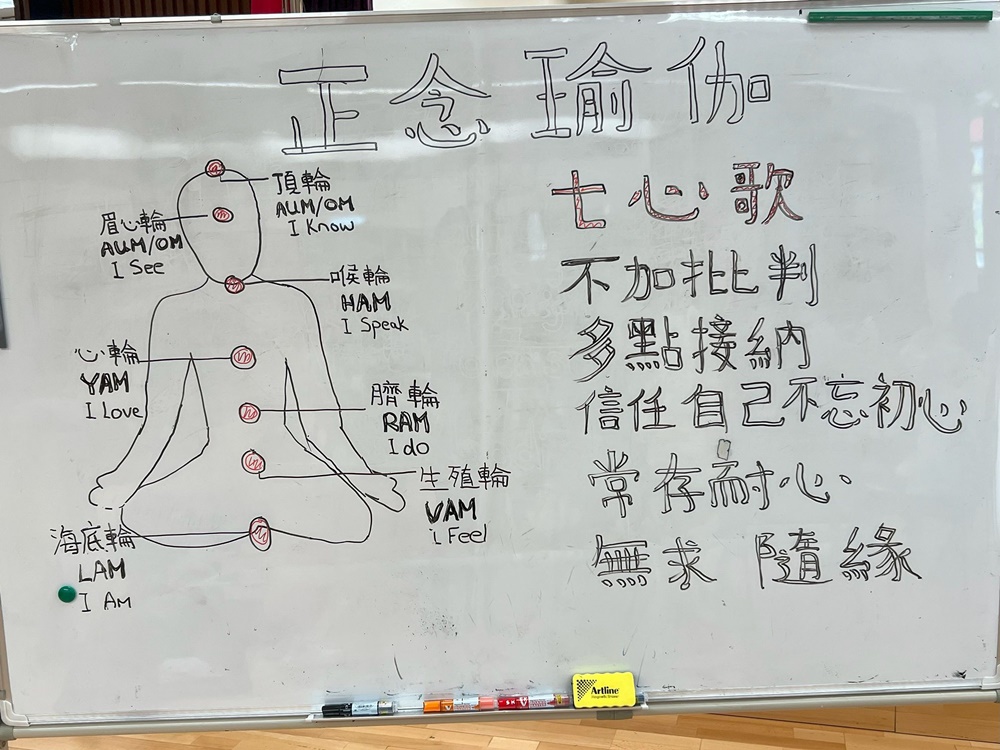 正念瑜伽
頂輪
AUM/OM
I Know
眉心輪
AUM/OM
I See
喉輪
HAM
I Speak
心輪
YAM
I Love
臍輪
RAM
I do
生殖輪
VAM
i Feel
海底輪
LAM
I Am
七心歌
不加批判
多點接納
信任自己不忘初心
常存耐心
無求 隨緣
Artline